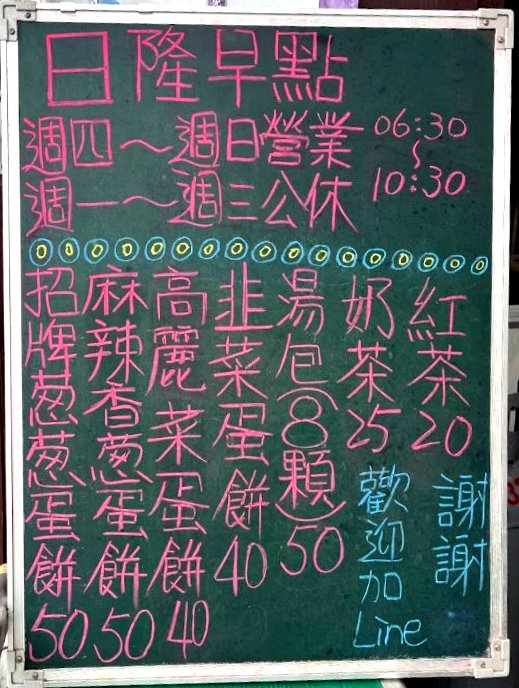 日隆早點
週四～週日營業 06:30
～
週一～週三公休 10:30
招牌蔥蔥蛋餅50
麻辣香蔥蛋餅50
高麗菜蛋餅40
韭菜蛋餅40
湯包(8顆)50
奶茶25
紅茶20
歡迎加Line
謝謝